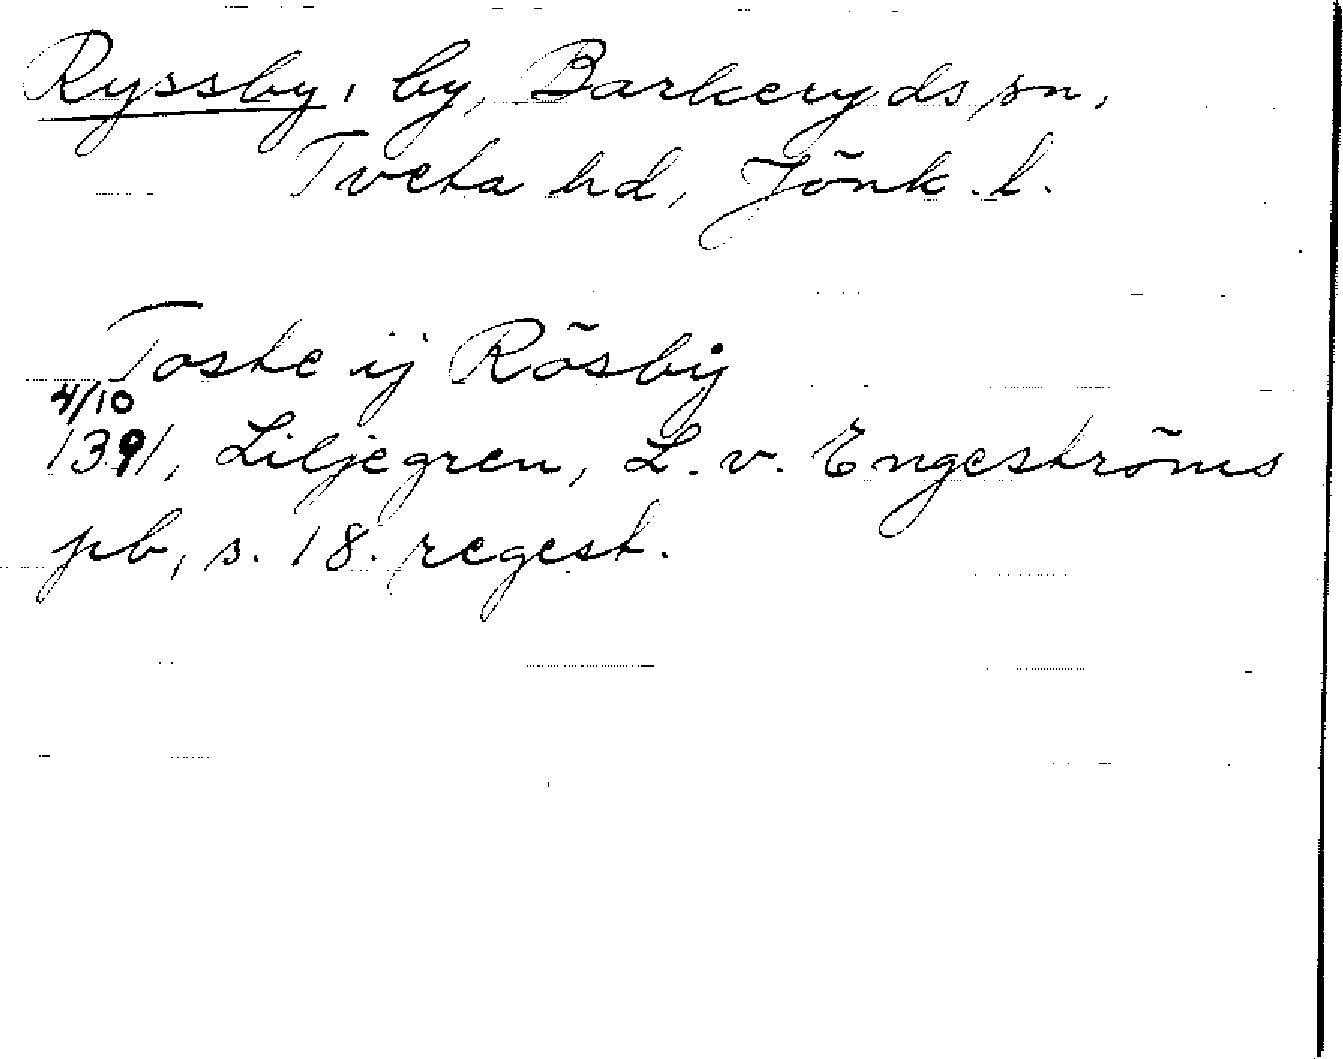 Ryssby, by, Barkeryds sn,
Tveta hd, Jönk. l.
Toste ij Rösbÿ
4/10
1391, Liljegren, L. v. Engeströms
pb, s. 18. regest.